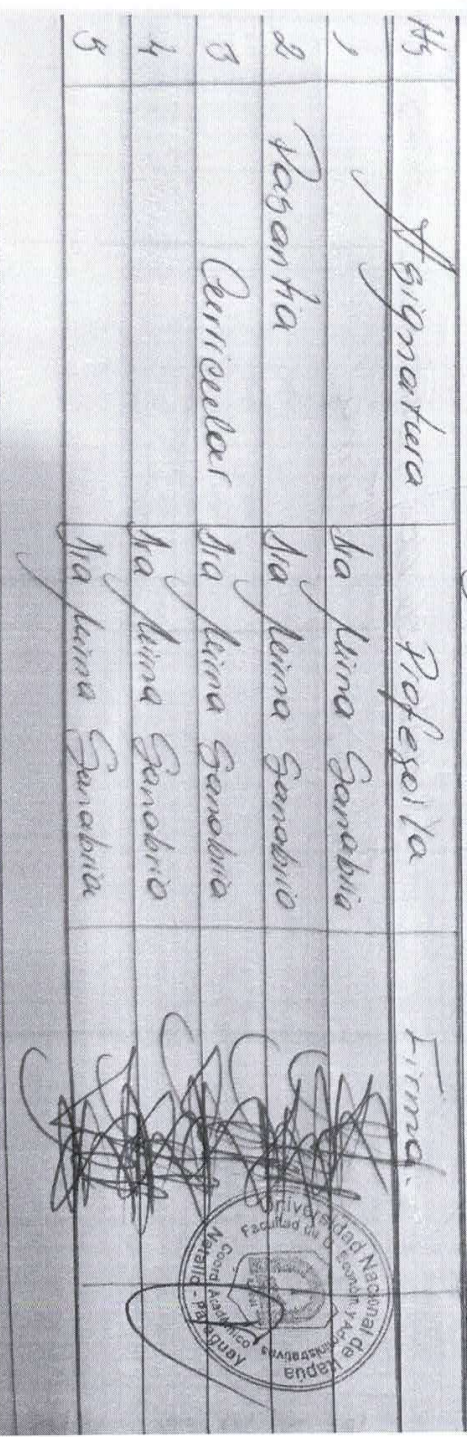 Hs Asignatura Profesor/a Firma.
1 Lira Sanabria
2 Pasantía Sanabria
3 Curricular Sanabria
4 Sanabria
5 Sanabria
Universidad Nacional de Itapúa
Facultad de C. Económ. y Administrativas
Coord. Académico
Natalio - Paraguay